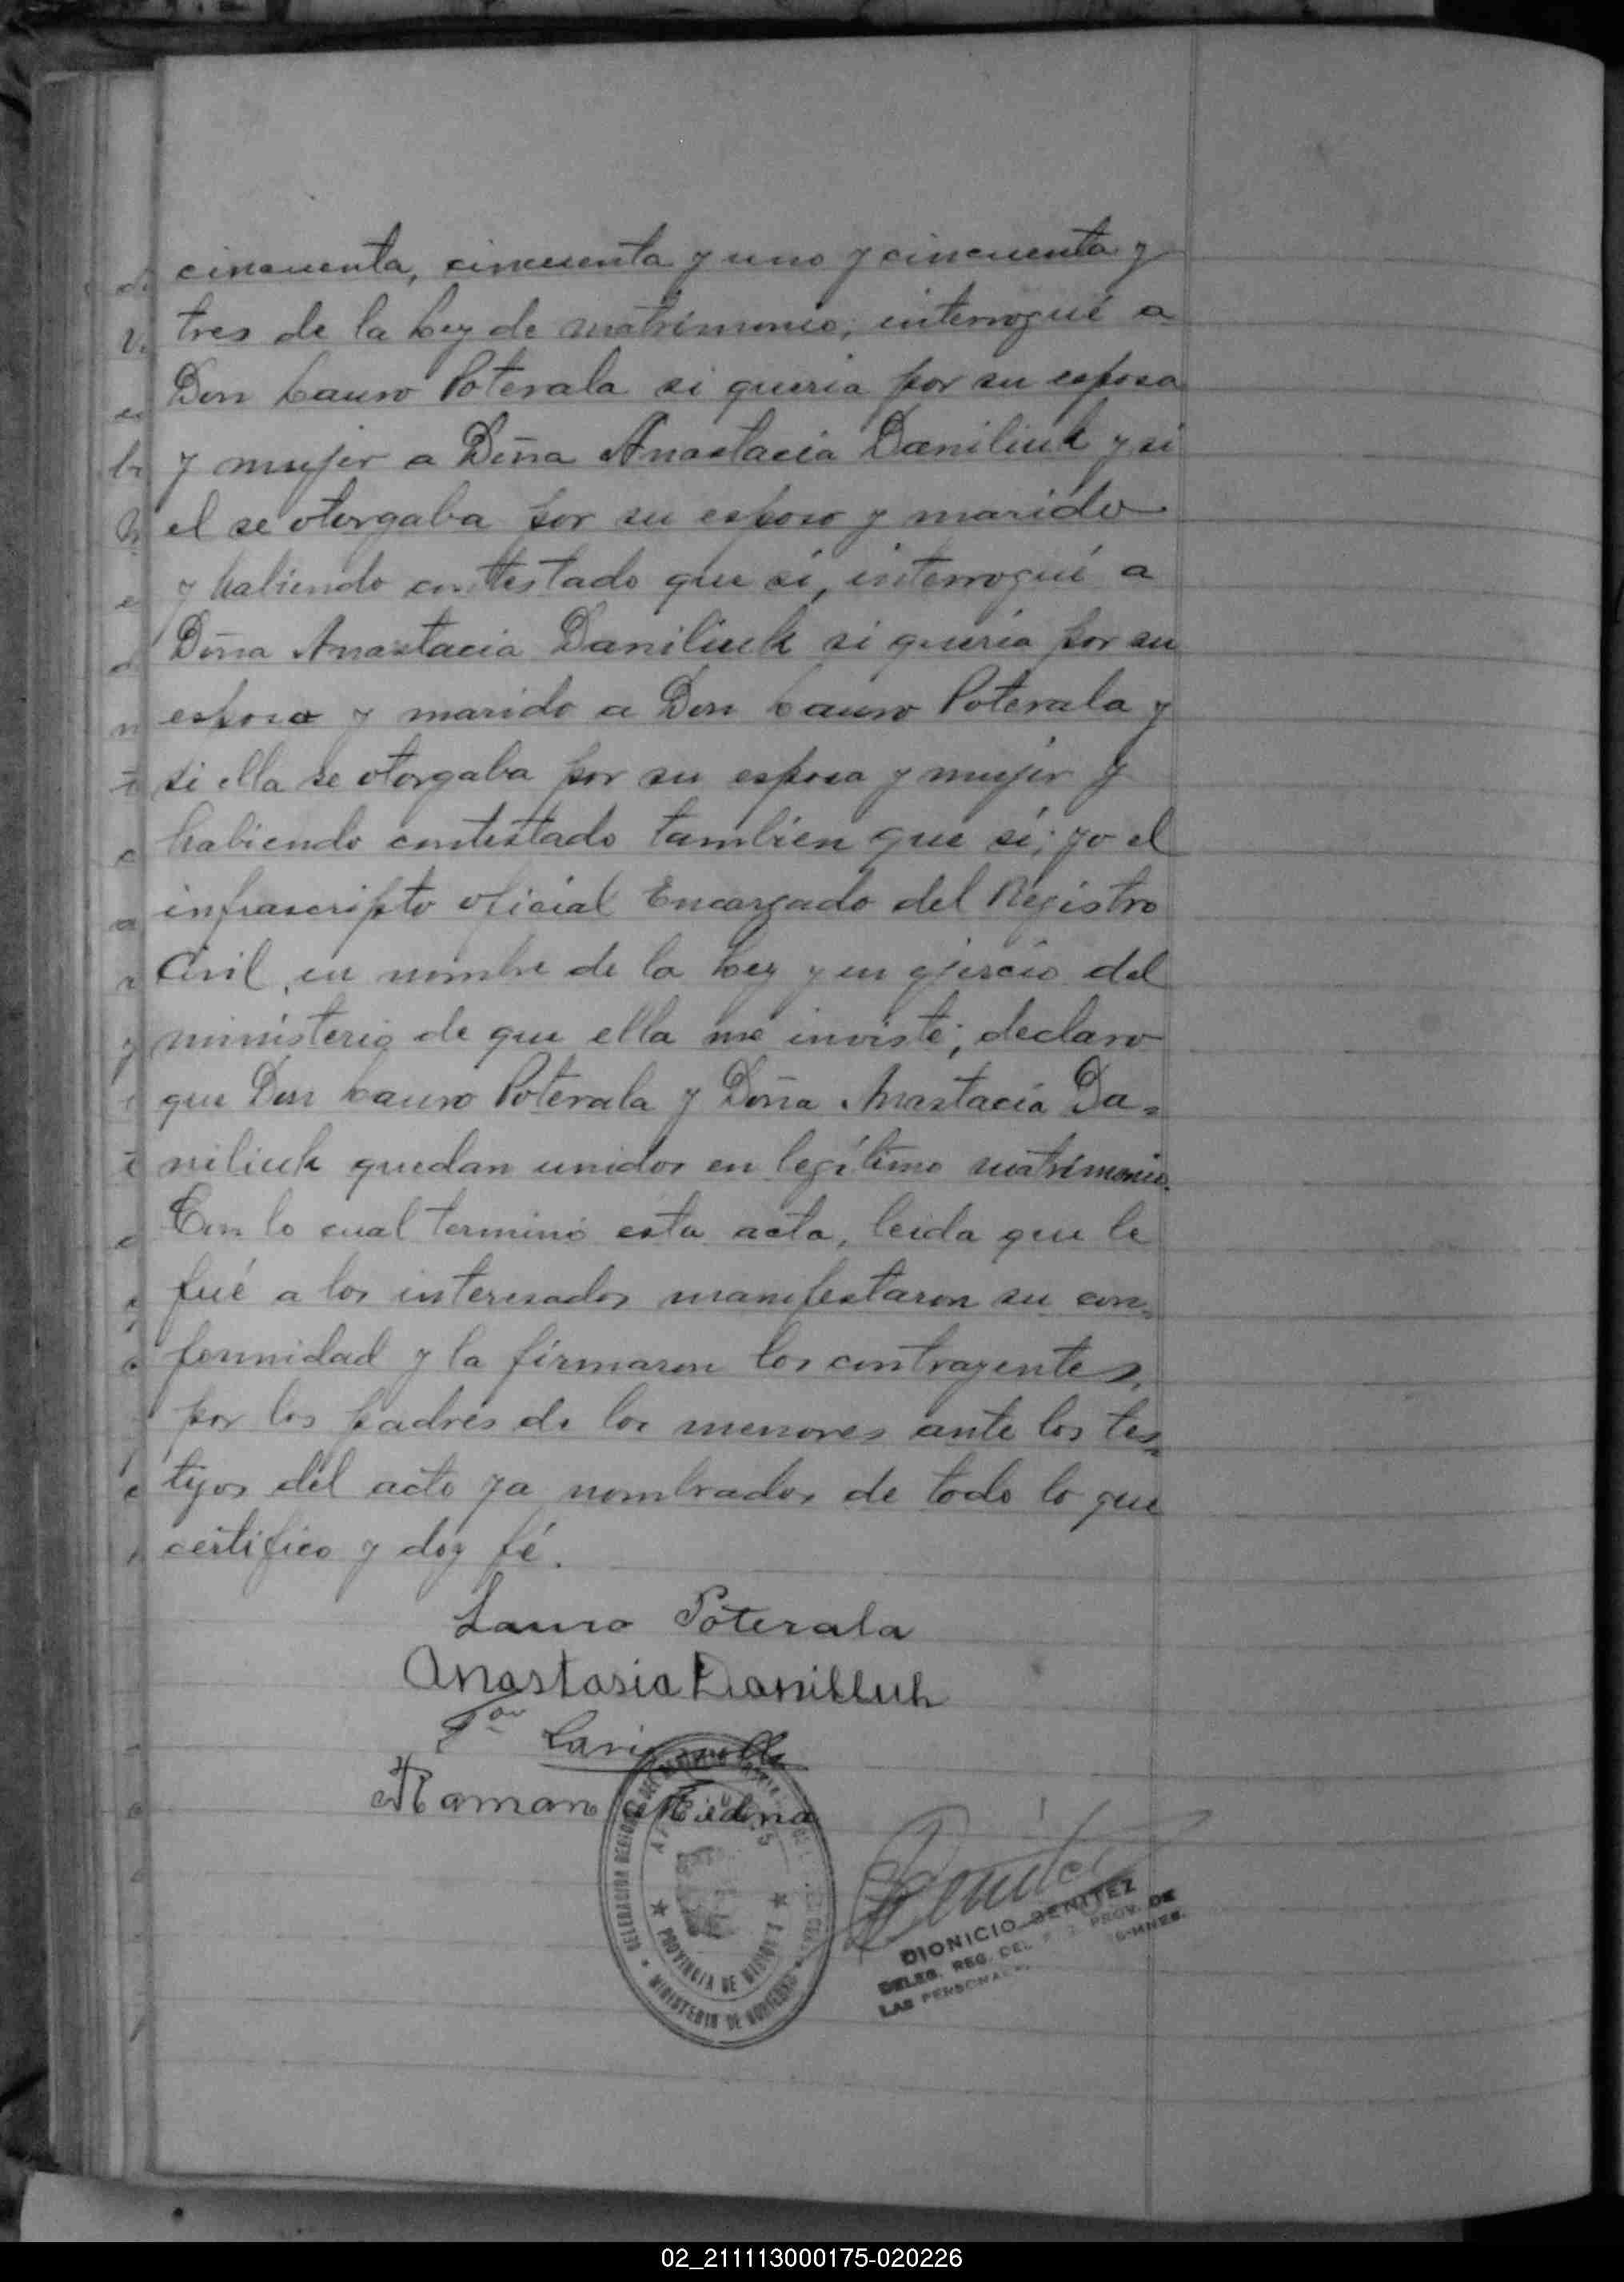 cincuenta, cincuenta y uno y cincuenta y
tres de la Ley de matrimonio; interrogué a
Don Lauro Poterala si queria por su esposa
y mujer a Doña Anastacia Daniliuk y si
el se otorgaba por su esposo y marido
y habiendo conttestado que si, interrogué a
Doña Anastacia Daniliuk si queria por su
esposo y marido a Don Lauro Poterala y
si ella se otorgaba por su esposa y mujer y
habiendo contestado tambien que si; yo el
infrascripto oficial Encargado del Registro
Civil, en nombre de la Ley y en ejercio del
ministerio de que ella me inviste; declaro
que Don Lauro Poterala y Doña Anastacia Da=
niliuk quedan unidos en legítimo matrimonio.
Con lo cual terminó esta acta, leida que le
fué a los interesados manifestaron su con=
formidad y la firmaron los contrayentes,
por los padres de los menores ante los tes=
tigos del acto ya nombrados de todo lo que
certifico y doy fé.
Lauro Poterala
Anastasia Daniliuk
Por
Ramon Medina
DELEGACION
PROVINCIA DE MISIONES
MINISTERIO DE GOBIERNO
Benitez
DIONICIO BENITEZ
DELEG. REG. DEL PROV. DE
LAS PERSONAS
02_211113000175-020226